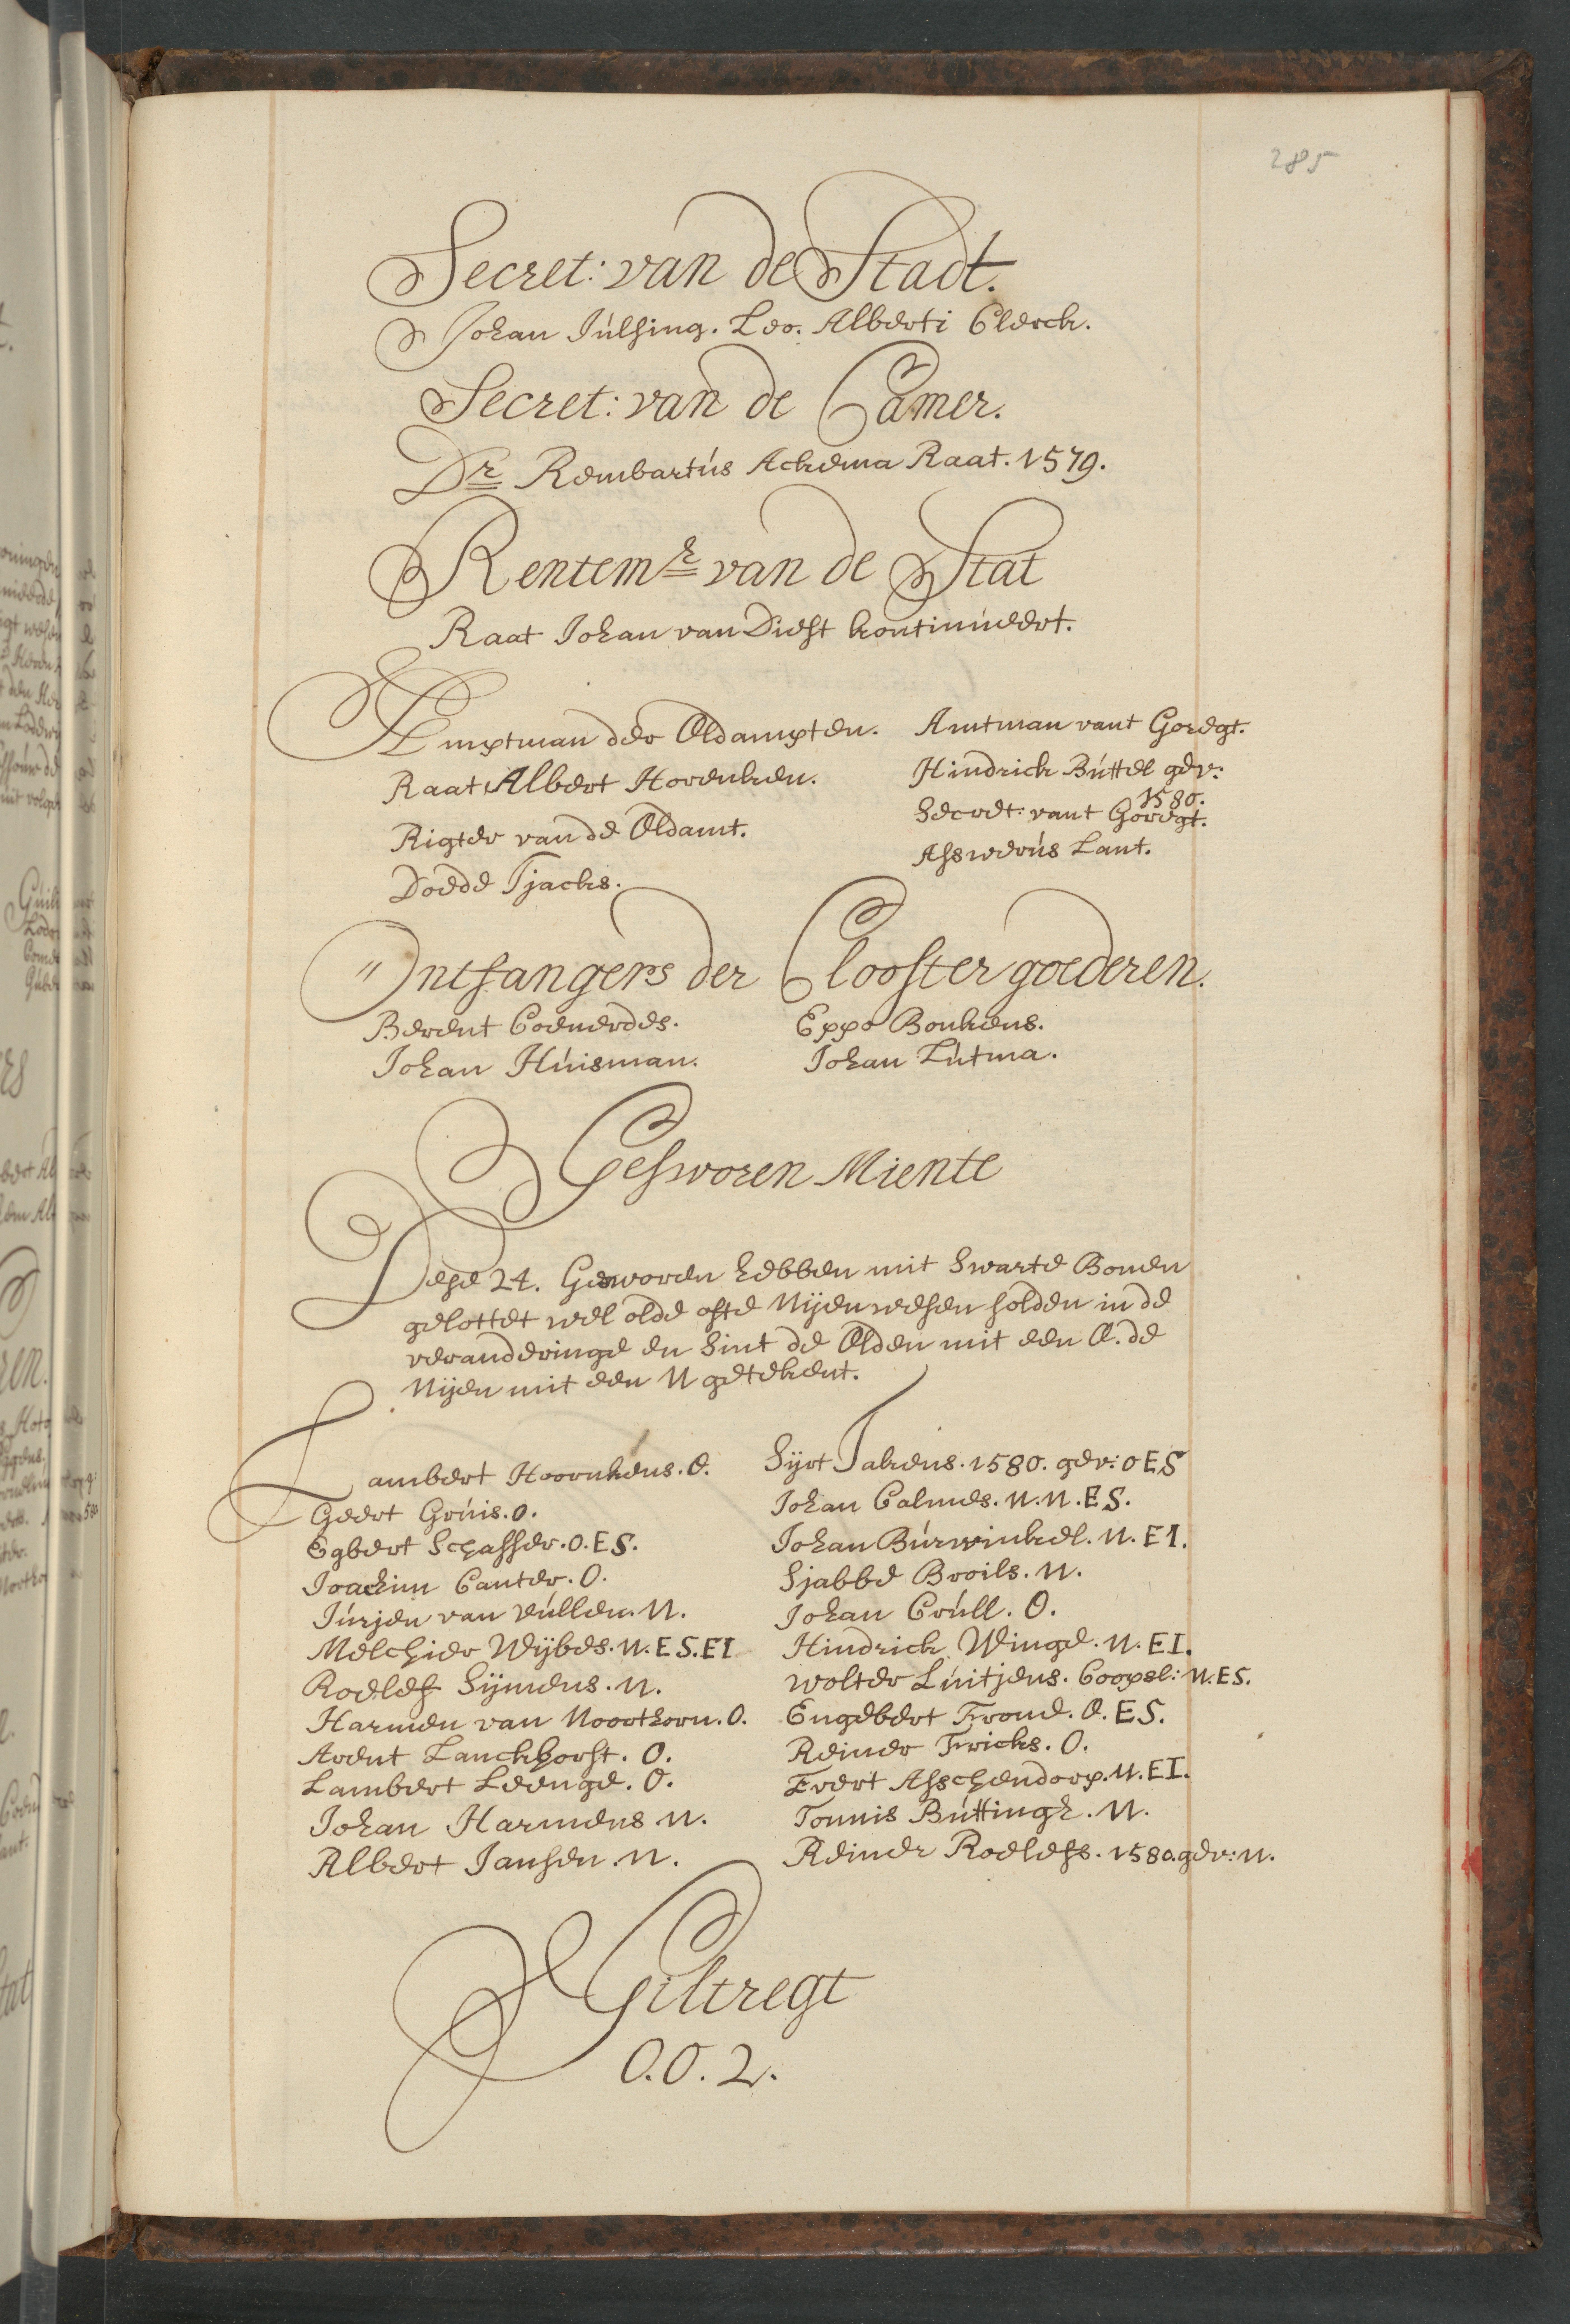 285
Secret: van de Stadt.
Johan Julsing. Leo. Alberti Clerck.
Secret: van de Camer.
Dr Rembartus Ackema Raat. 1579.
Rentemr van de Stat
Raat Johan van Diest kontinueert.
Amptman der Oldampten.
Raat Albert Horenken.
Rigter van de Oldamt.
Doede Tjacks.
Amtman vant Goregt.
Hindrick Buttel gev:
1580.
Secret: vant Goregt.
Assverus Lant.
Ontfangers der Clooster goederen.
Berent Coenerdes. Eppo Bonkens.
Johan Huisman. Johan Lutma.
Gesworen Miente
Dese 24. Gesworen hebben mit Swarte Bonen
gelottet wel olde ofte Nijen wesen solden in de
veranderinge en Sint de Olden mit een O. de
Nijen mit een N getekent.
Lambert Hoornkens. O.
Geert Gruis. O.
Egbert Schaffer. O. ES.
Joachim Canter. O.
Jurjen van Vullen. N.
Melchier Wijbes. N. ES. EI
Roelef Sijmens. N.
Harmen van Noorthorn. O.
Arent Lanckhorst. O.
Lambert Leenge. O.
Johan Harmens N.
Albert Jansen. N.
Sijrt Takens. 1580. gev: O ES
Johan Calmes. N. N. ES.
Johan Burwinkel. N. EI.
Sjabbe Broils. N.
Johan Crull. O.
Hindrick Winge. N. EI.
Wolter Luitjens. Coopsl: N. ES.
Engebert Frome. O. ES.
Reiner Fricks. O.
Evert Asschendorp. N. EI.
Tonnis Buttingh. N.
Reiner Roelefs. 1580. gev: N.
Giltregt
O. O. 2.